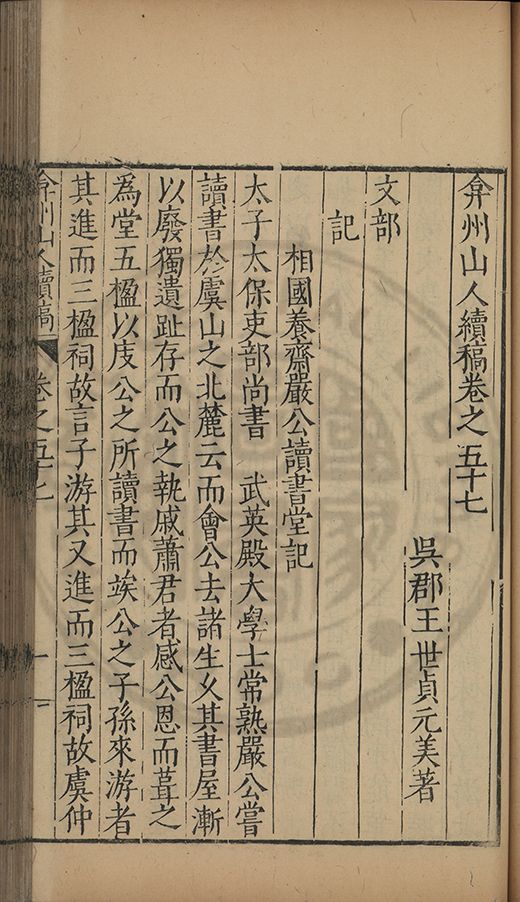 弇州山人續稿卷之五十七
吳郡王世貞元美著
文部
記
相國養齋嚴公讀書堂記
太子太保吏部尚書 武英殿大學士常熟嚴公嘗
讀書於虞山之北麓云而會公去諸生久其書屋漸
以廢獨遺趾存而公之執戚蕭君者感公恩而葺之
爲堂五楹以庋公之所讀書而竢公之子孫來游者
其進而三楹祠故言子游其又進而三楹祠故虞仲
弇州山人續稿 卷之五十七 一